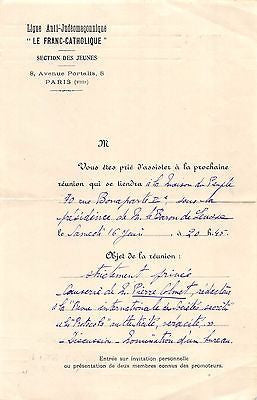 Ligue Anti-Judéomaçonnique
" LE FRANC-CATHOLIQUE "
SECTION DES JEUNES
8, Avenue Portalis, 8
PARIS (VIIIe)
M
Vous êtes prié d'assister à la prochaine
réunion qui se tiendra à la Maison du Peuple
70 rue Bonaparte sous la
présidence de M. le Baron de
le Samedi 16 Juin , à 20 h. 45.
Objet de la réunion :
strictement privée
Causerie de M. Pierre Colmet, rédacteur
à la "Revue internationale des Sociétés secrètes
"Protocols" authenticité, véracité, »
- Discussion - Nomination d'un bureau.
Entrée sur invitation personnelle
ou présentation de deux membres connus des promoteurs.